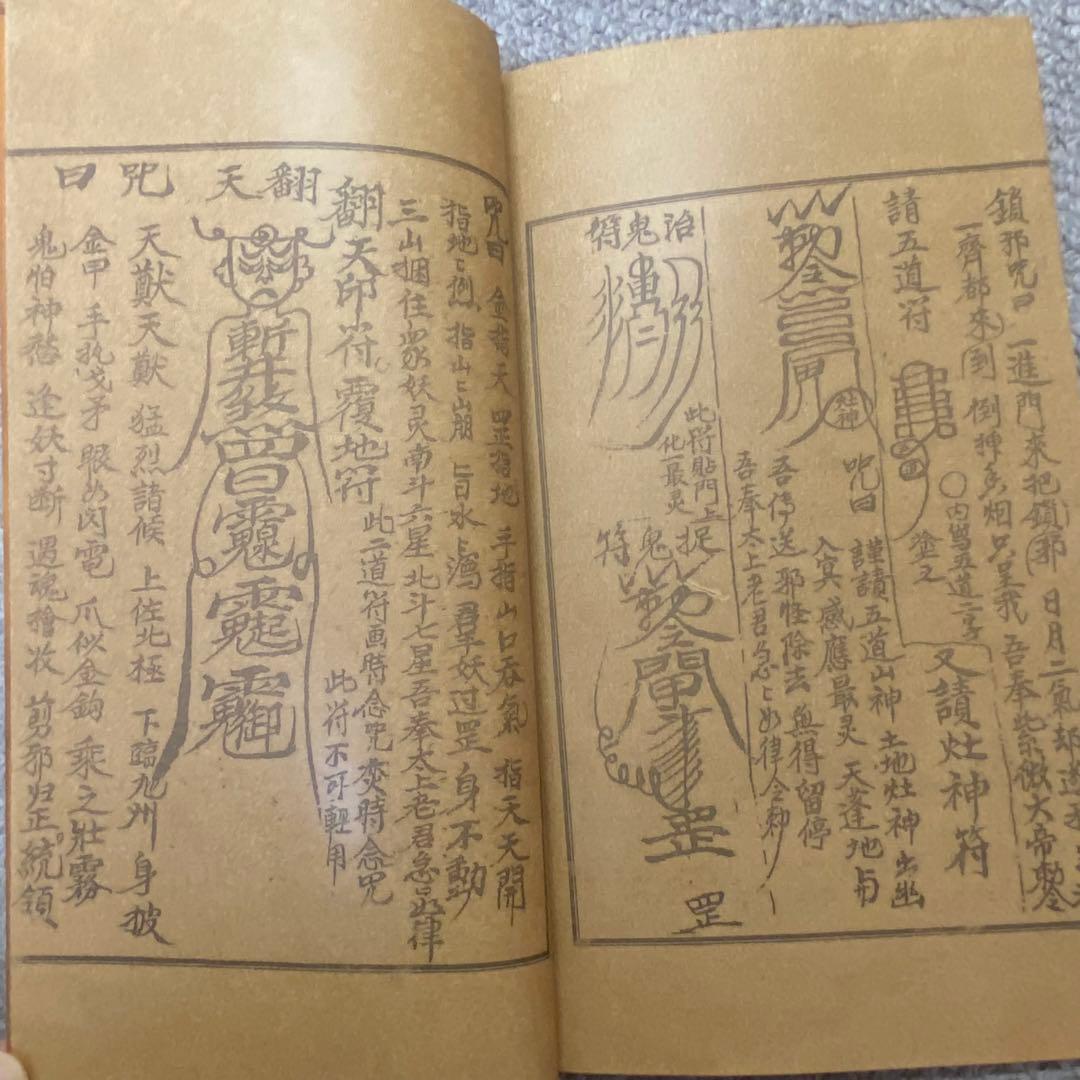 鎖邪咒曰 一進門来把鎖邪 日月二氣
一齊都来到 倒神香烟只呈我 吾奉紫微大帝勅令
請五道符
塗之
○内写五道二字
又請灶神符
灶神
咒曰 謹請五道山神土地灶神出幽
入冥感應最灵 天蓬地
吾傳送 邪怪除去 無得留停
吾奉太上老君急〻如律令勅
治鬼符
此符貼門上
化一最灵
捉鬼符
罡
咒曰 金指天 罡指地 手指山 口吞氣 指天天開
指地〻倒 指山〻崩 旨水〻濁 群妖过罡 身不動
三山捆住衆妖灵 南斗六星北斗七星 吾奉太上老君急急如律
翻天印符 覆地符
此二道符画時念咒 焚時念咒
此符不可輕用
翻天咒曰
天猷天猷 猛烈諸候 上佐北極 下臨九州 身披
金甲 手执戈矛 眼如閃電 爪似金鈎 乘之壯霧
鬼怕神 逢妖寸断 遇魂擒收 剪邪归正 統領